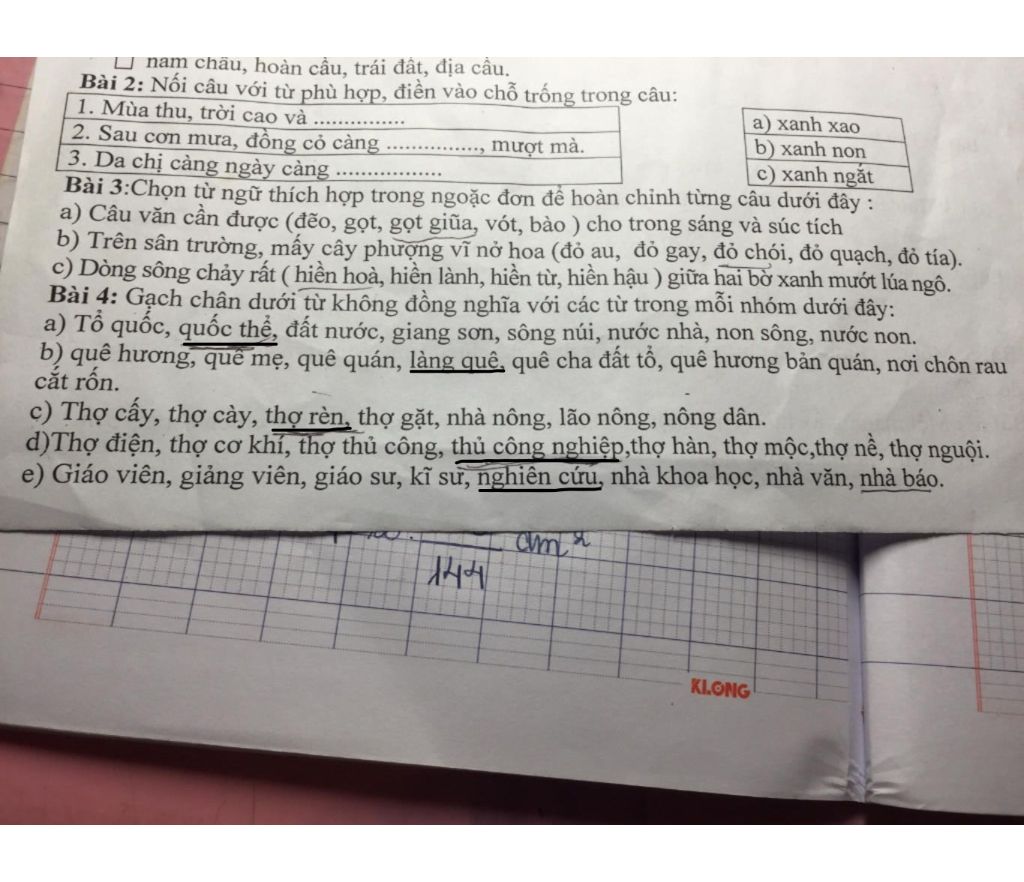 năm châu, hoàn cầu, trái đất, địa cầu.
Bài 2: Nối câu với từ phù hợp, điền vào chỗ trống trong câu:
1. Mùa thu, trời cao và ...............
a) xanh xao
2. Sau cơn mưa, đồng cỏ càng ..............., mượt mà.
b) xanh non
3. Da chị càng ngày càng .................
c) xanh ngắt
Bài 3:Chọn từ ngữ thích hợp trong ngoặc đơn để hoàn chỉnh từng câu dưới đây :
a) Câu văn cần được (đẽo, gọt, gọt giũa, vót, bào ) cho trong sáng và súc tích
b) Trên sân trường, mấy cây phượng vĩ nở hoa (đỏ au, đỏ gay, đỏ chói, đỏ quạch, đỏ tía).
c) Dòng sông chảy rất ( hiền hoà, hiền lành, hiền từ, hiền hậu ) giữa hai bờ xanh mướt lúa ngô.
Bài 4: Gạch chân dưới từ không đồng nghĩa với các từ trong mỗi nhóm dưới đây:
a) Tổ quốc, quốc thể, đất nước, giang sơn, sông núi, nước nhà, non sông, nước non.
b) quê hương, quê mẹ, quê quán, làng quê, quê cha đất tổ, quê hương bản quán, nơi chôn rau
cắt rốn.
c) Thợ cấy, thợ cày, thợ rèn, thợ gặt, nhà nông, lão nông, nông dân.
d)Thợ điện, thợ cơ khí, thợ thủ công, thủ công nghiệp,thợ hàn, thợ mộc,thợ nề, thợ nguội.
e) Giáo viên, giảng viên, giáo sư, kĩ sư, nghiên cứu, nhà khoa học, nhà văn, nhà báo.
dm²
144
KLONG